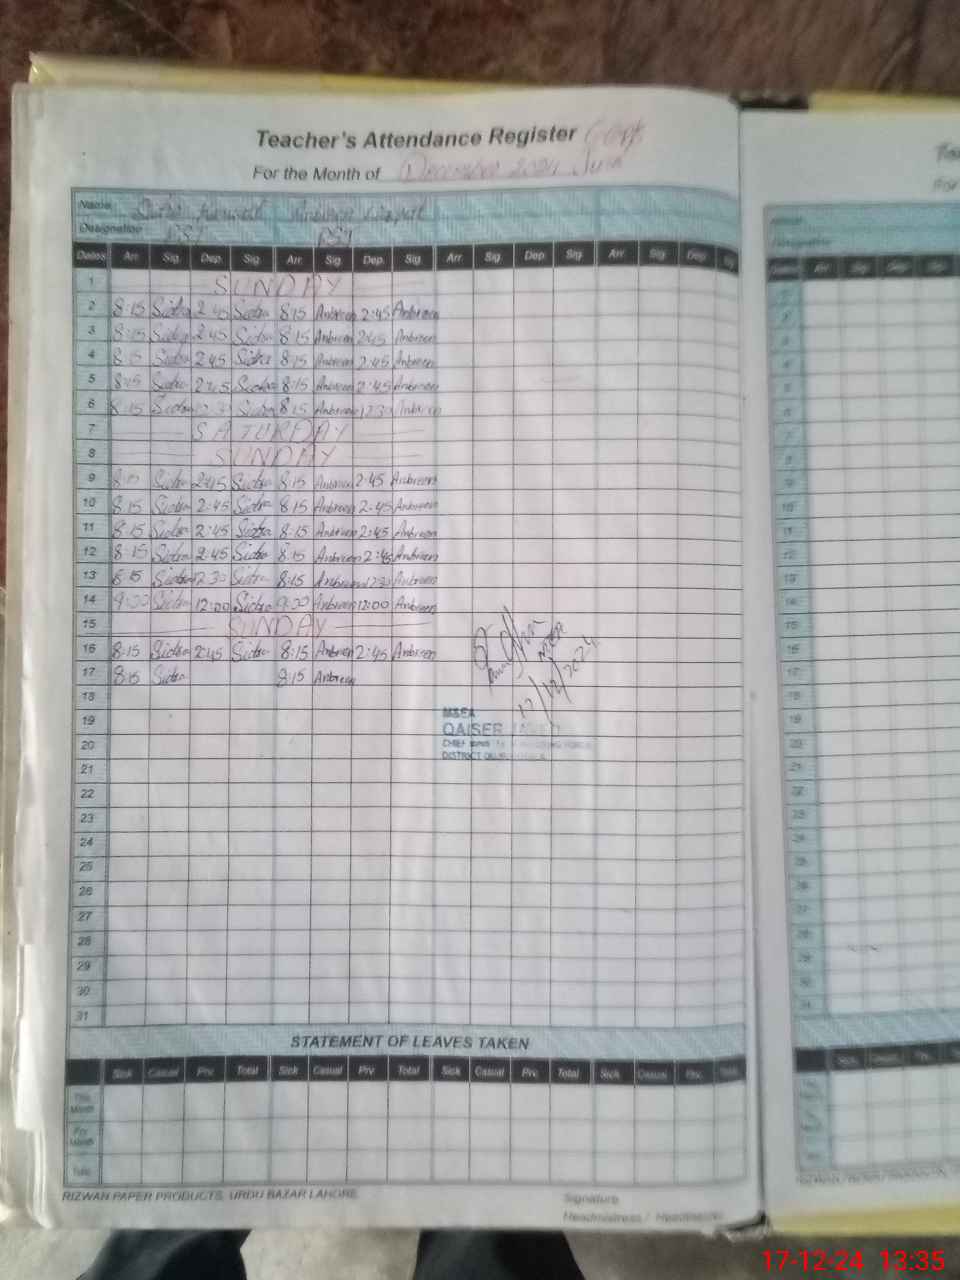 Teacher's Attendance Register
For the Month of December 2024
Name
Designation
Dates Arr. Sig. Dep. Sig. Arr. Sig. Dep. Sig. Arr. Sig. Dep. Sig Arr. Sig. Dep. Sig
1 SUNDAY
2 8:15 Sidra 2:45 Sidra 8:15 Anbreen 2:45 Anbreen
3 8:15 Sidra 2:45 Sidra 8:15 Anbreen 2:45 Anbreen
4 8:15 Sidra 2:45 Sidra 8:15 Anbreen 2:45 Anbreen
5 8:15 Sidra 2:45 Sidra 8:15 Anbreen 2:45 Anbreen
6 8:15 Sidra 12:30 Sidra 8:15 Anbreen 12:30 Anbreen
7 SATURDAY
8 SUNDAY
9 8:15 Sidra 2:45 Sidra 8:15 Anbreen 2:45 Anbreen
10 8:15 Sidra 2:45 Sidra 8:15 Anbreen 2:45 Anbreen
11 8:15 Sidra 2:45 Sidra 8:15 Anbreen 2:45 Anbreen
12 8:15 Sidra 2:45 Sidra 8:15 Anbreen 2:45 Anbreen
13 8:15 Sidra 12:30 Sidra 8:15 Anbreen 12:30 Anbreen
14 9:00 Sidra 12:00 Sidra 9:00 Anbreen 12:00 Anbreen
15 SUNDAY
16 8:15 Sidra 2:45 Sidra 8:15 Anbreen 2:45 Anbreen
17 8:15 Sidra 8:15 Anbreen
MEA
17/12/2024
18
19
MSEA
QAISER
20
CHIEF
DISTRICT
21
22
23
24
25
26
27
28
29
30
31
STATEMENT OF LEAVES TAKEN
Sick Casual Prv. Total Sick Casual Prv. Total Sick Casual Prv. Total Sick Casual Prv. Total
This Month
Prv Month
Total
RIZWAN PAPER PRODUCTS, URDU BAZAR LAHORE.
Signature
Headmistress / Headmaster
17-12-24 13:35